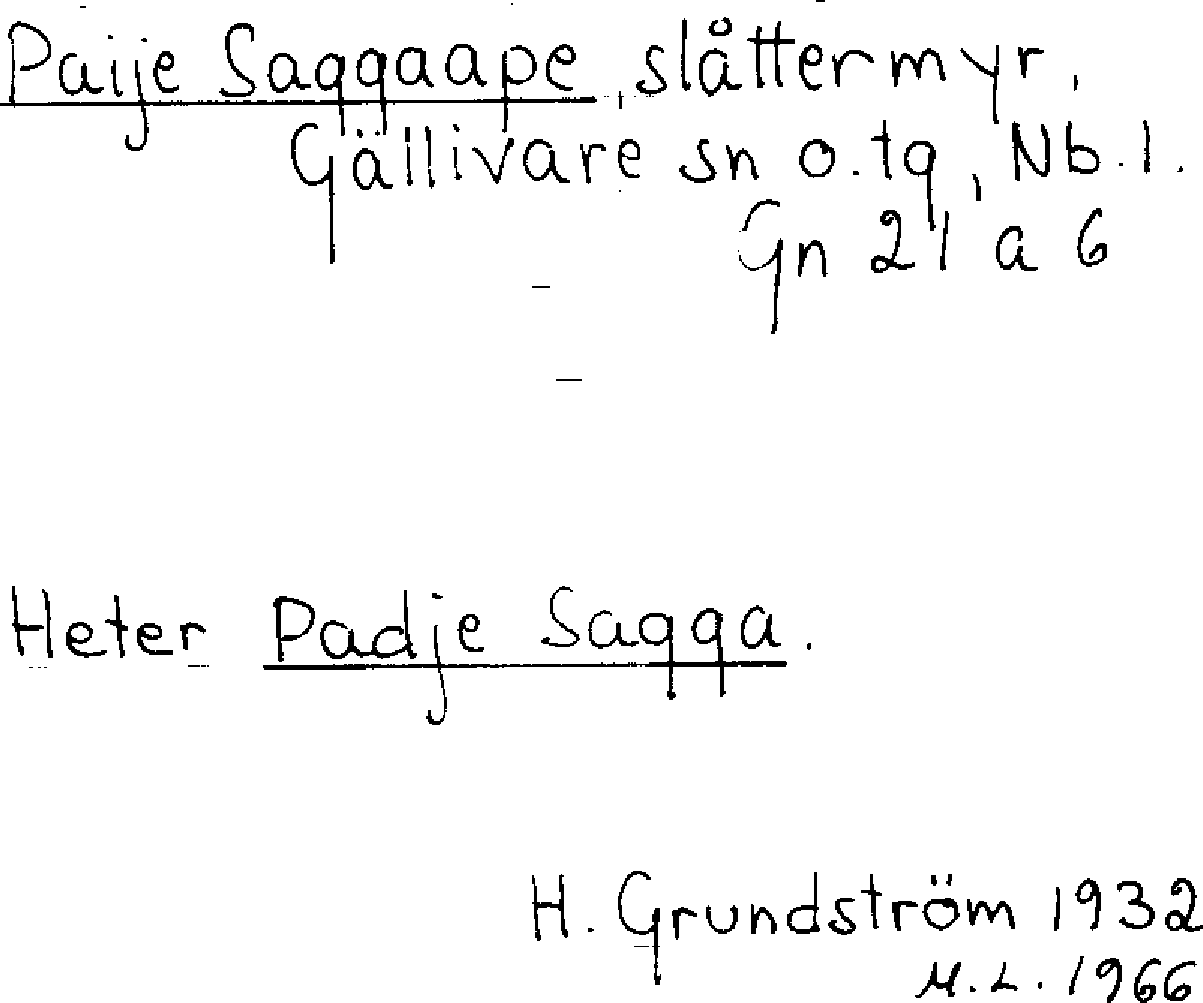 Paije Saggaape, slåttermyr,
Gällivare sn o. tg, Nb. l.
Gn 21 a 6
Heter Padje Sagga.
H. Grundström 1932
M. L. 1966